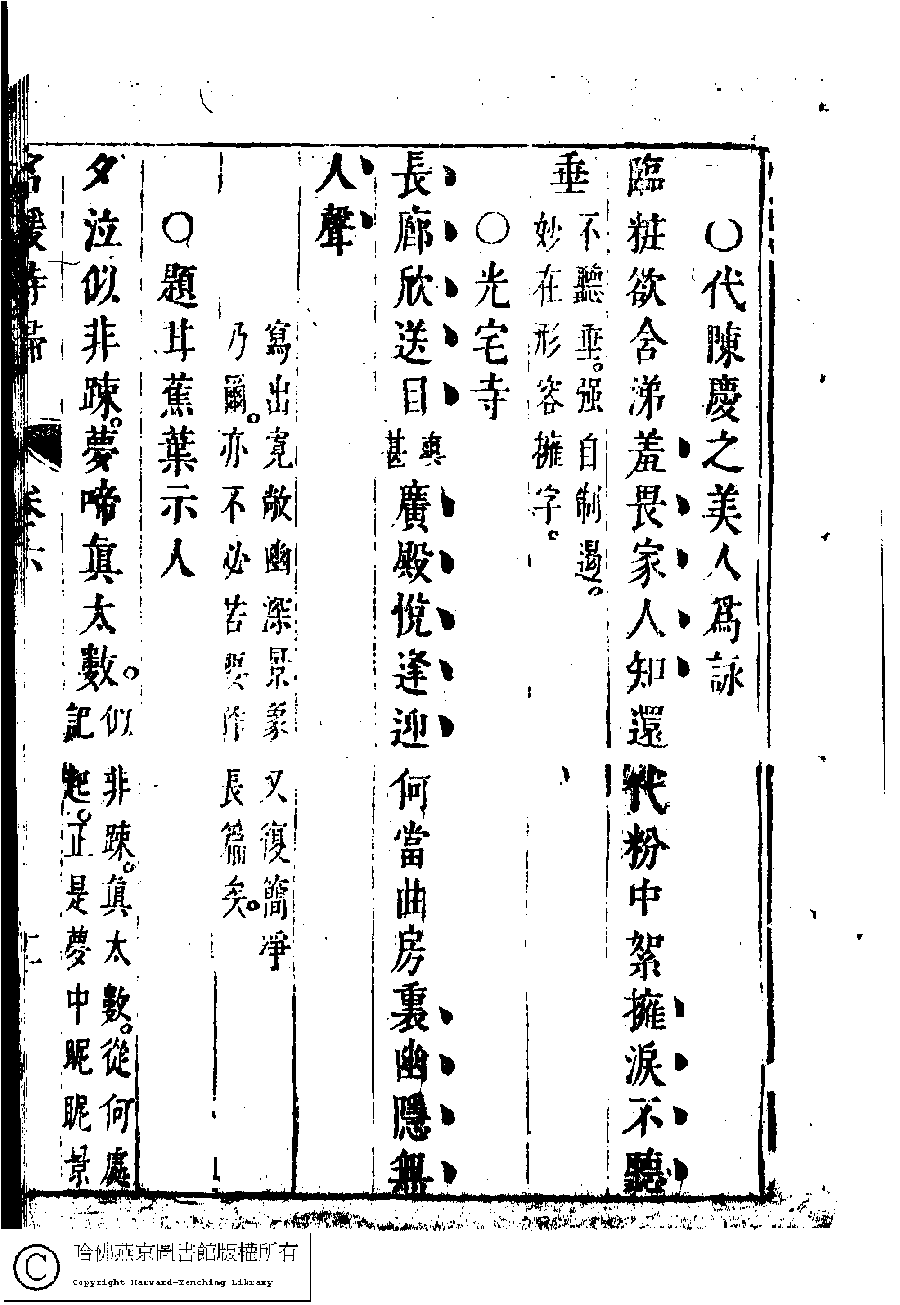 ○代陳慶之美人爲詠
臨粧欲含涕羞畏家人知還代粉中絮擁淚不聽
垂
不聽垂。强自制遏。
妙在形容擁字。
○光宅寺
長廊欣送目
真
甚
廣殿悅逢迎何當曲房裏幽隱無
人聲
寫出寛敞幽深景象又復簡凈
乃爾。亦不必苦要作長篇矣。
○題甘蕉葉示人
夕泣似非踈。夢啼眞太數。
似非踈。眞太數。從何處
記起。正是夢中昵昵景
名媛詩歸
卷六
哈佛燕京圖書館版權所有
Copyright Harvard-Yenching Library